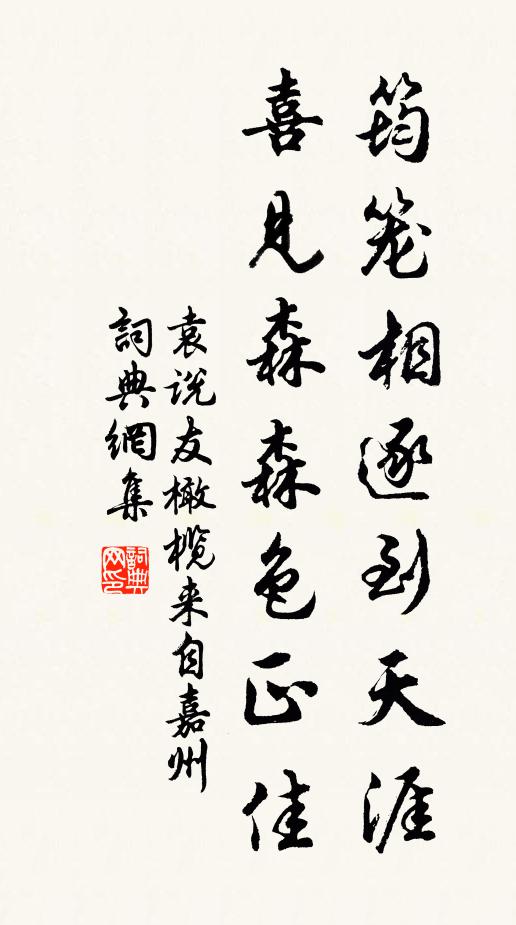 筠笼相逐到天涯
喜見森森色正佳
袁说友橄榄来自嘉州
詞典網集
詞典网印